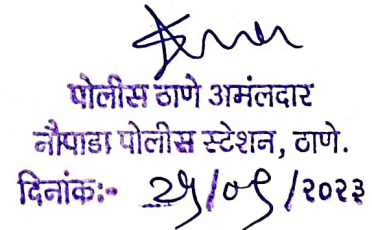 पोलीस ठाणे अमंलदार
नौपाडा पोलीस स्टेशन, ठाणे.
दिनांकः- २५/०९/२०२३